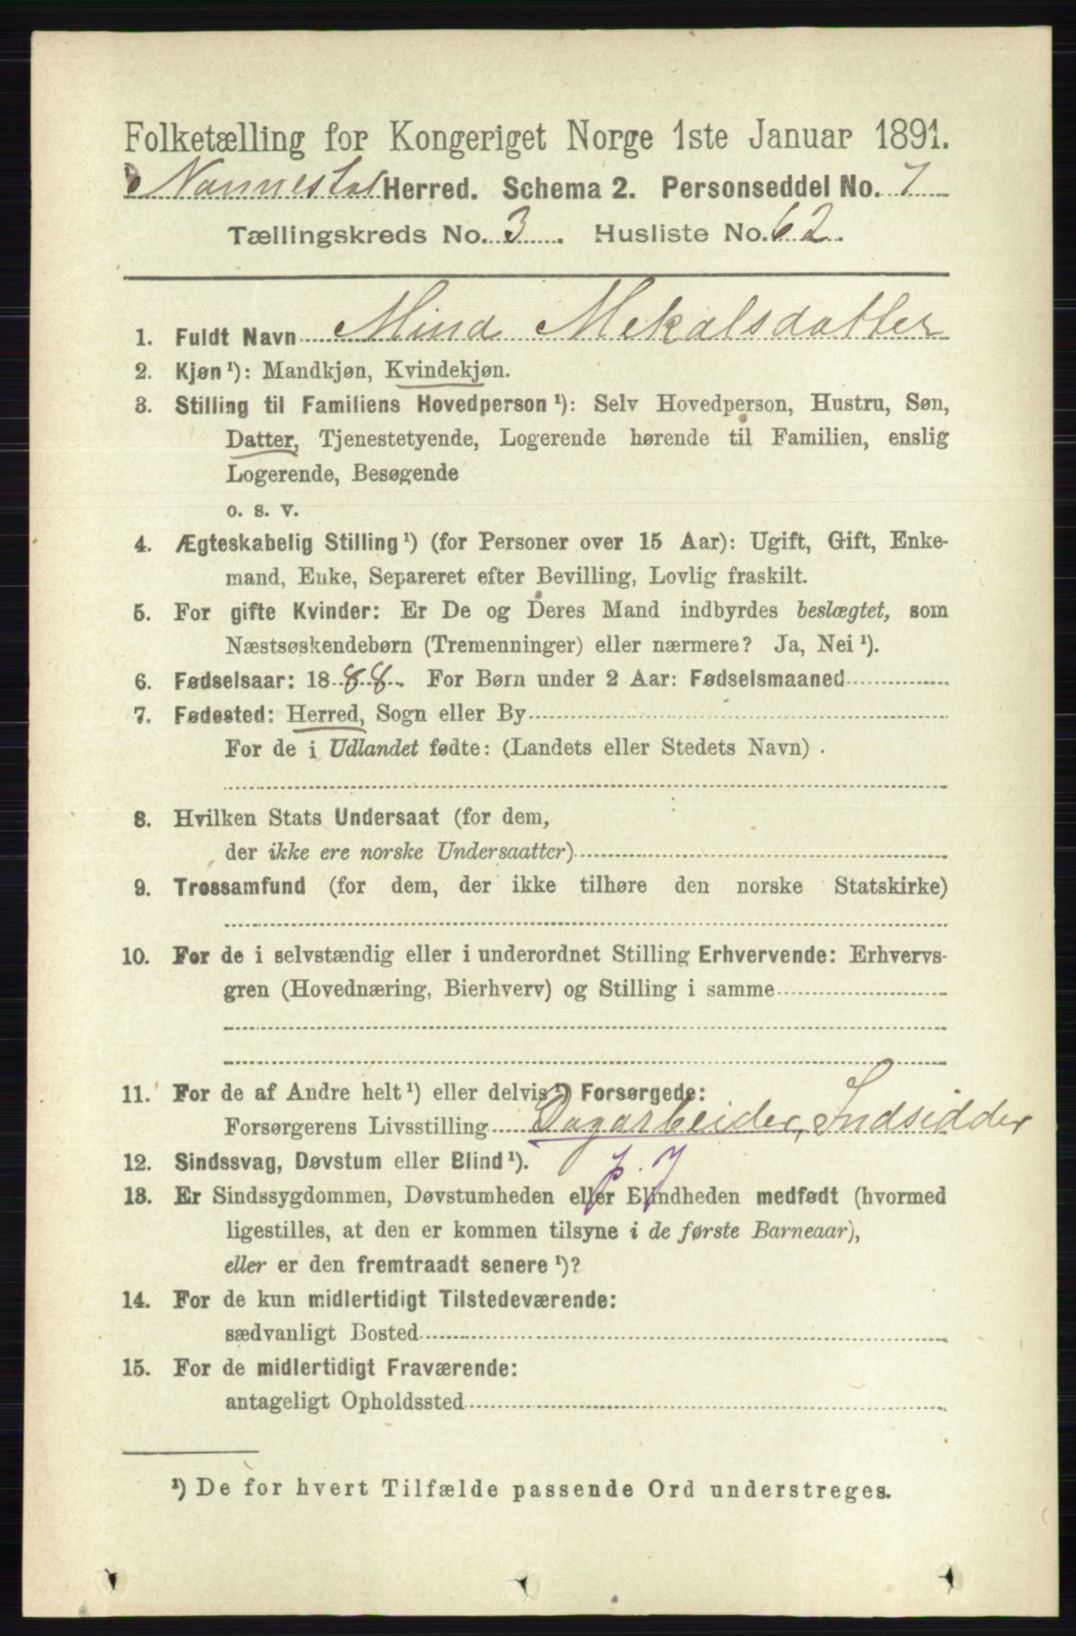 Folketælling for Kongeriget Norge 1ste Januar 1891.
Nannestad Herred. Schema 2. Personseddel No. 7
Tællingskreds No. 3. Husliste No. 62.
1. Fuldt Navn Mina Mekalsdatter
2. Kjøn ¹): Mandkjøn, Kvindekjøn.
3. Stilling til Familiens Hovedperson ¹): Selv Hovedperson, Hustru, Søn,
Datter, Tjenestetyende, Logerende hørende til Familien, enslig
Logerende, Besøgende
o. s. v.
4. Ægteskabelig Stilling ¹) (for Personer over 15 Aar): Ugift, Gift, Enke-
mand, Enke, Separeret efter Bevilling, Lovlig fraskilt.
5. For gifte Kvinder: Er De og Deres Mand indbyrdes beslægtet, som
Næstsøskendebørn (Tremenninger) eller nærmere? Ja, Nei ¹).
6. Fødselsaar: 1888. For Børn under 2 Aar: Fødselsmaaned
7. Fødested: Herred, Sogn eller By
For de i Udlandet fødte: (Landets eller Stedets Navn) .
8. Hvilken Stats Undersaat (for dem,
der ikke ere norske Undersaatter)
9. Trossamfund (for dem, der ikke tilhøre den norske Statskirke)
10. For de i selvstændig eller i underordnet Stilling Erhvervende: Erhvervs-
gren (Hovednæring, Bierhverv) og Stilling i samme
11. For de af Andre helt ¹) eller delvis ¹) Forsørgede:
Forsørgerens Livsstilling Dagarbeider, Indsidder
12. Sindssvag, Døvstum eller Blind ¹). p. J
13. Er Sindssygdommen, Døvstumheden eller Blindheden medfødt (hvormed
ligestilles, at den er kommen tilsyne i de første Barneaar),
eller er den fremtraadt senere ¹)?
14. For de kun midlertidigt Tilstedeværende:
sædvanligt Bosted
15. For de midlertidigt Fraværende:
antageligt Opholdssted
¹) De for hvert Tilfælde passende Ord understreges.